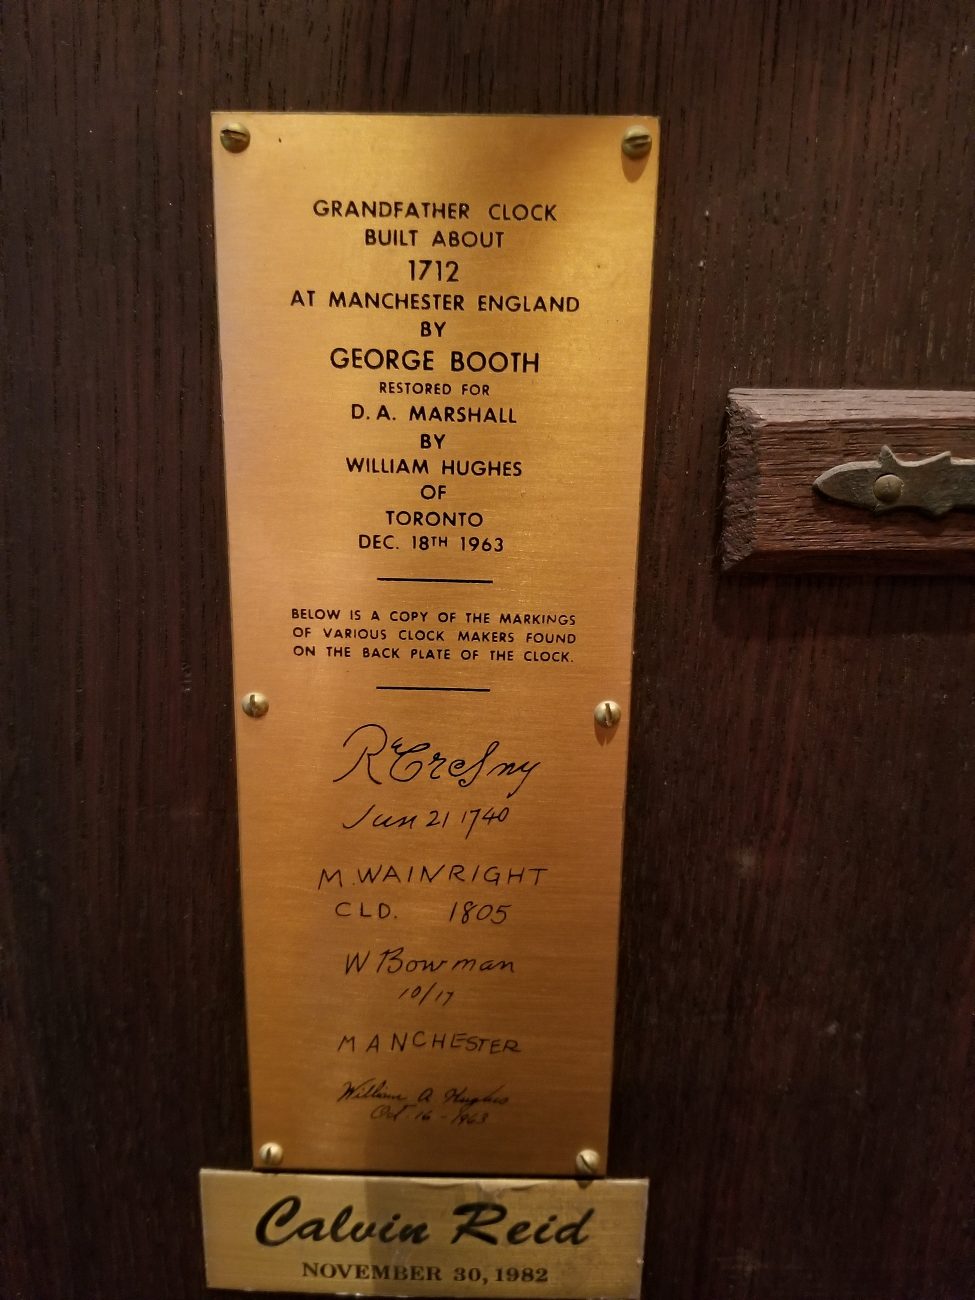 GRANDFATHER CLOCK
BUILT ABOUT
1712
AT MANCHESTER ENGLAND
BY
GEORGE BOOTH
RESTORED FOR
D. A. MARSHALL
BY
WILLIAM HUGHES
OF
TORONTO
DEC. 18TH 1963
BELOW IS A COPY OF THE MARKINGS
OF VARIOUS CLOCK MAKERS FOUND
ON THE BACK PLATE OF THE CLOCK.
Jun 21 1740
M. WAINRIGHT
CLD. 1805
W Bowman
10/17
MANCHESTER
William A. Hughes
Oct. 16 - 1963
Calvin Reid
NOVEMBER 30, 1982